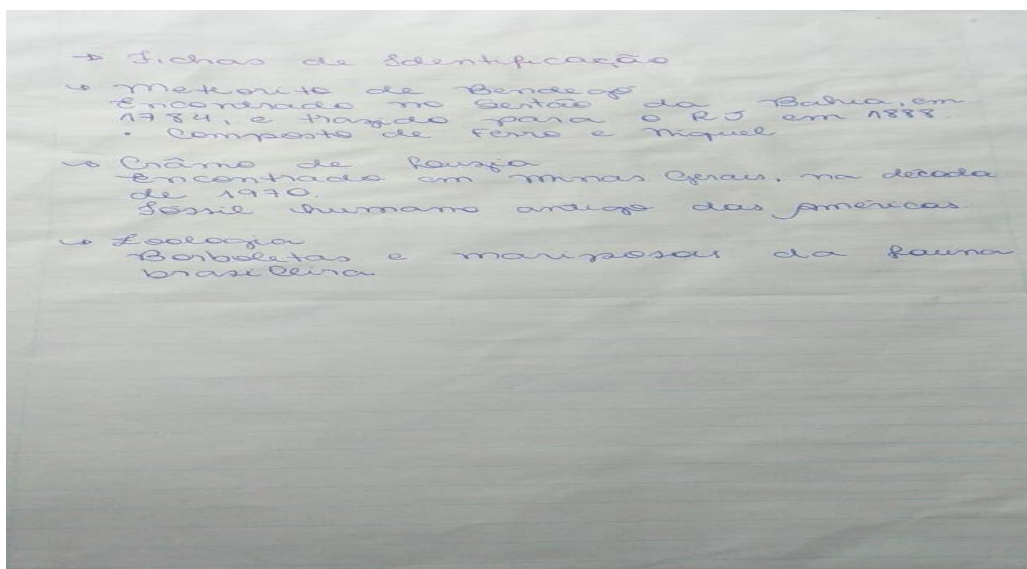 → Fichas de Identificação
↳ Meteorito de Bendegó
Encontrado no Sertão da Bahia, em
1784, e trazido para o RJ em 1888.
• Composto de Ferro e Niquel
↳ Crânio de Luzia
Encontrado em Minas Gerais, na década
de 1970.
Fóssil humano antigo das Américas
↳ Zoologia
Borboletas e mariposas da fauna
brasileira